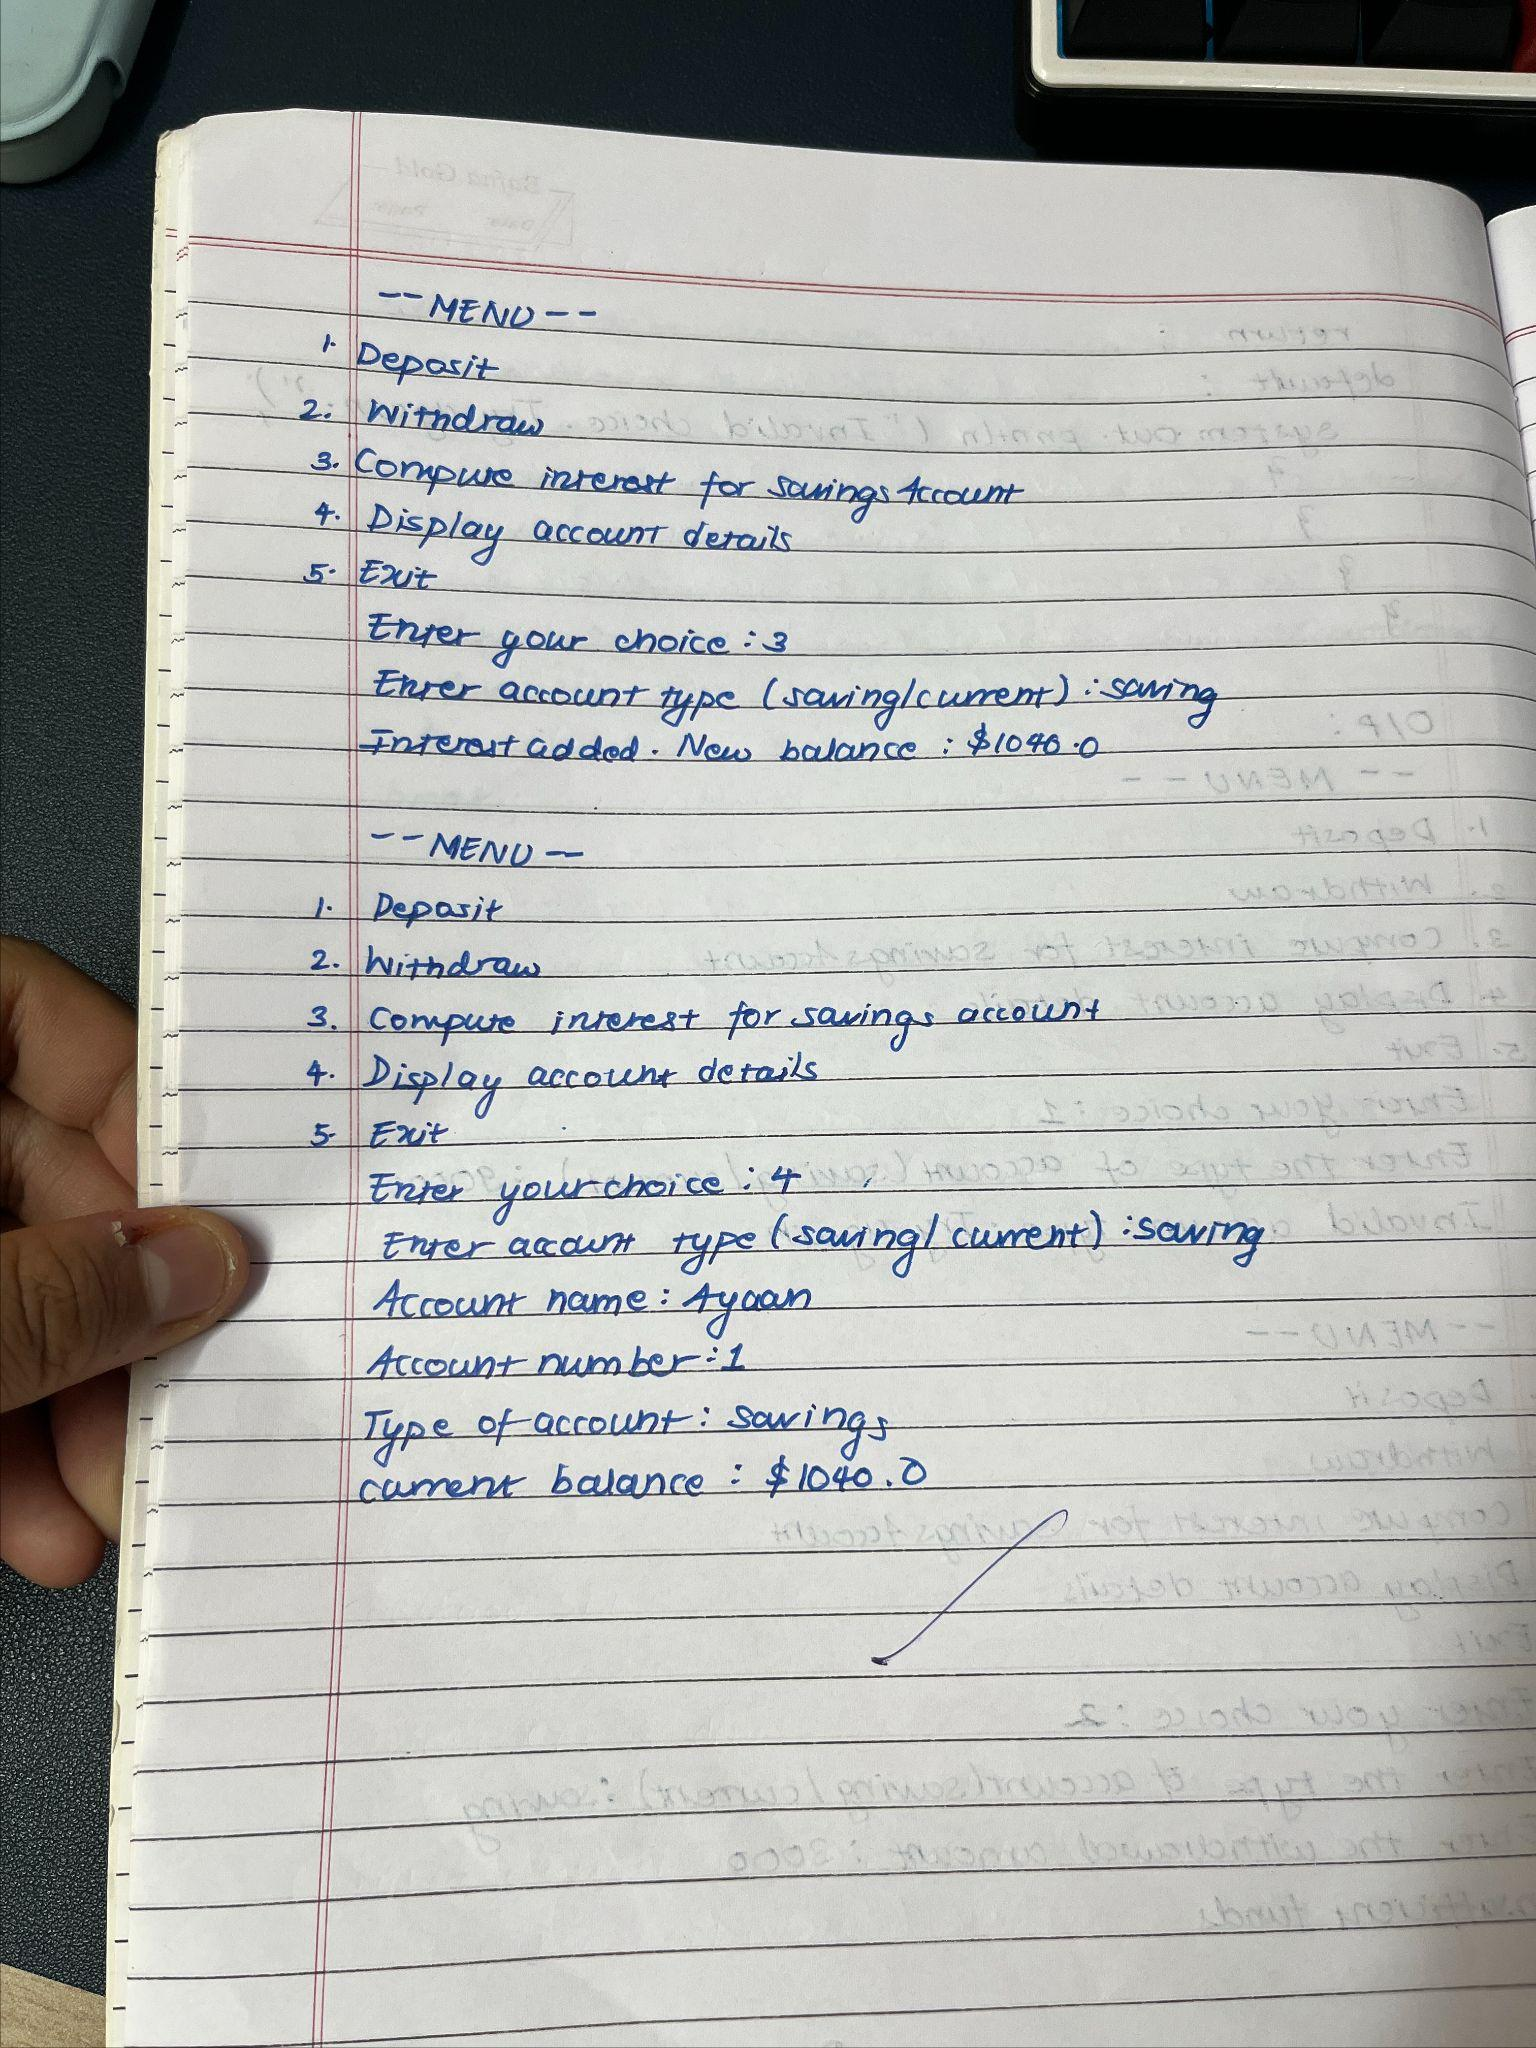 --MENU--
1. Deposit
2. Withdraw
3. Compute interest for savings Account
4. Display account details
5. Exit
Enter your choice : 3
Enter account type (saving/current) : saving
Interest added. New balance : $1040.0
--MENU--
1. Deposit
2. Withdraw
3. Compute interest for savings account
4. Display account details
5. Exit
Enter your choice : 4
Enter account type (saving/current) : saving
Account name : Ayaan
Account number : 1
Type of account : savings
current balance : $1040.0